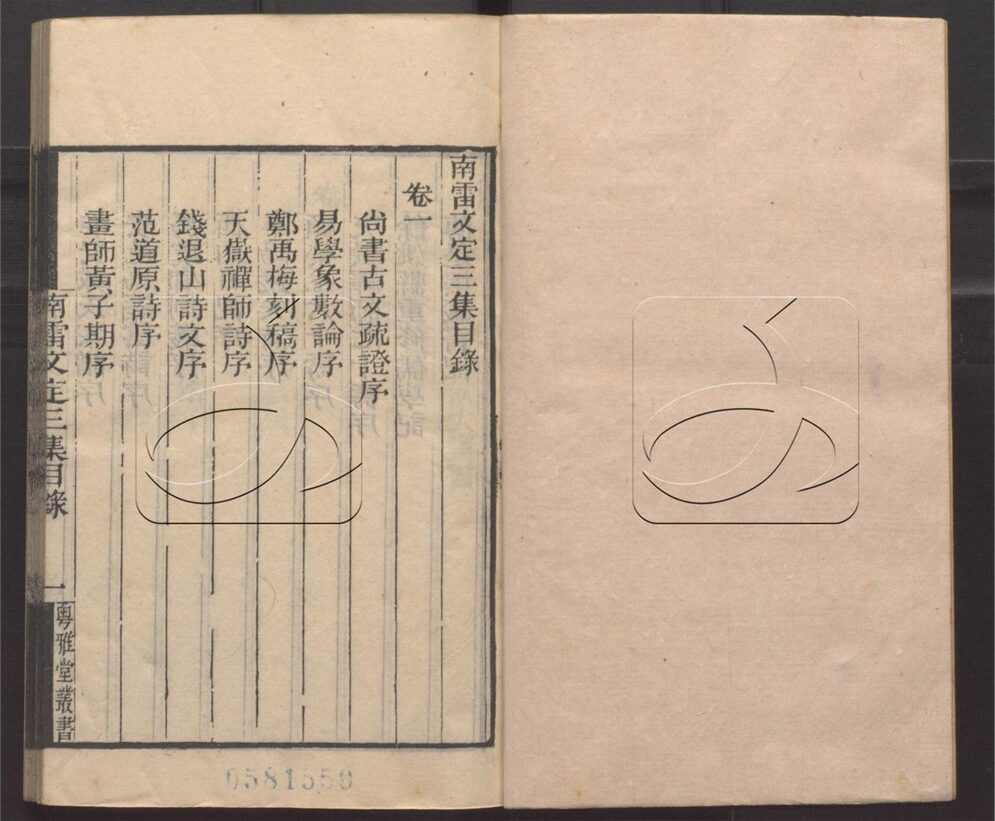 南雷文定三集目錄
卷一
尙書古文疏證序
易學象數論序
鄭禹梅刻稿序
天嶽禪師詩序
錢退山詩文序
范道原詩序
畫師黃子期序
南雷文定三集目錄
一
粵雅堂叢書
0581550